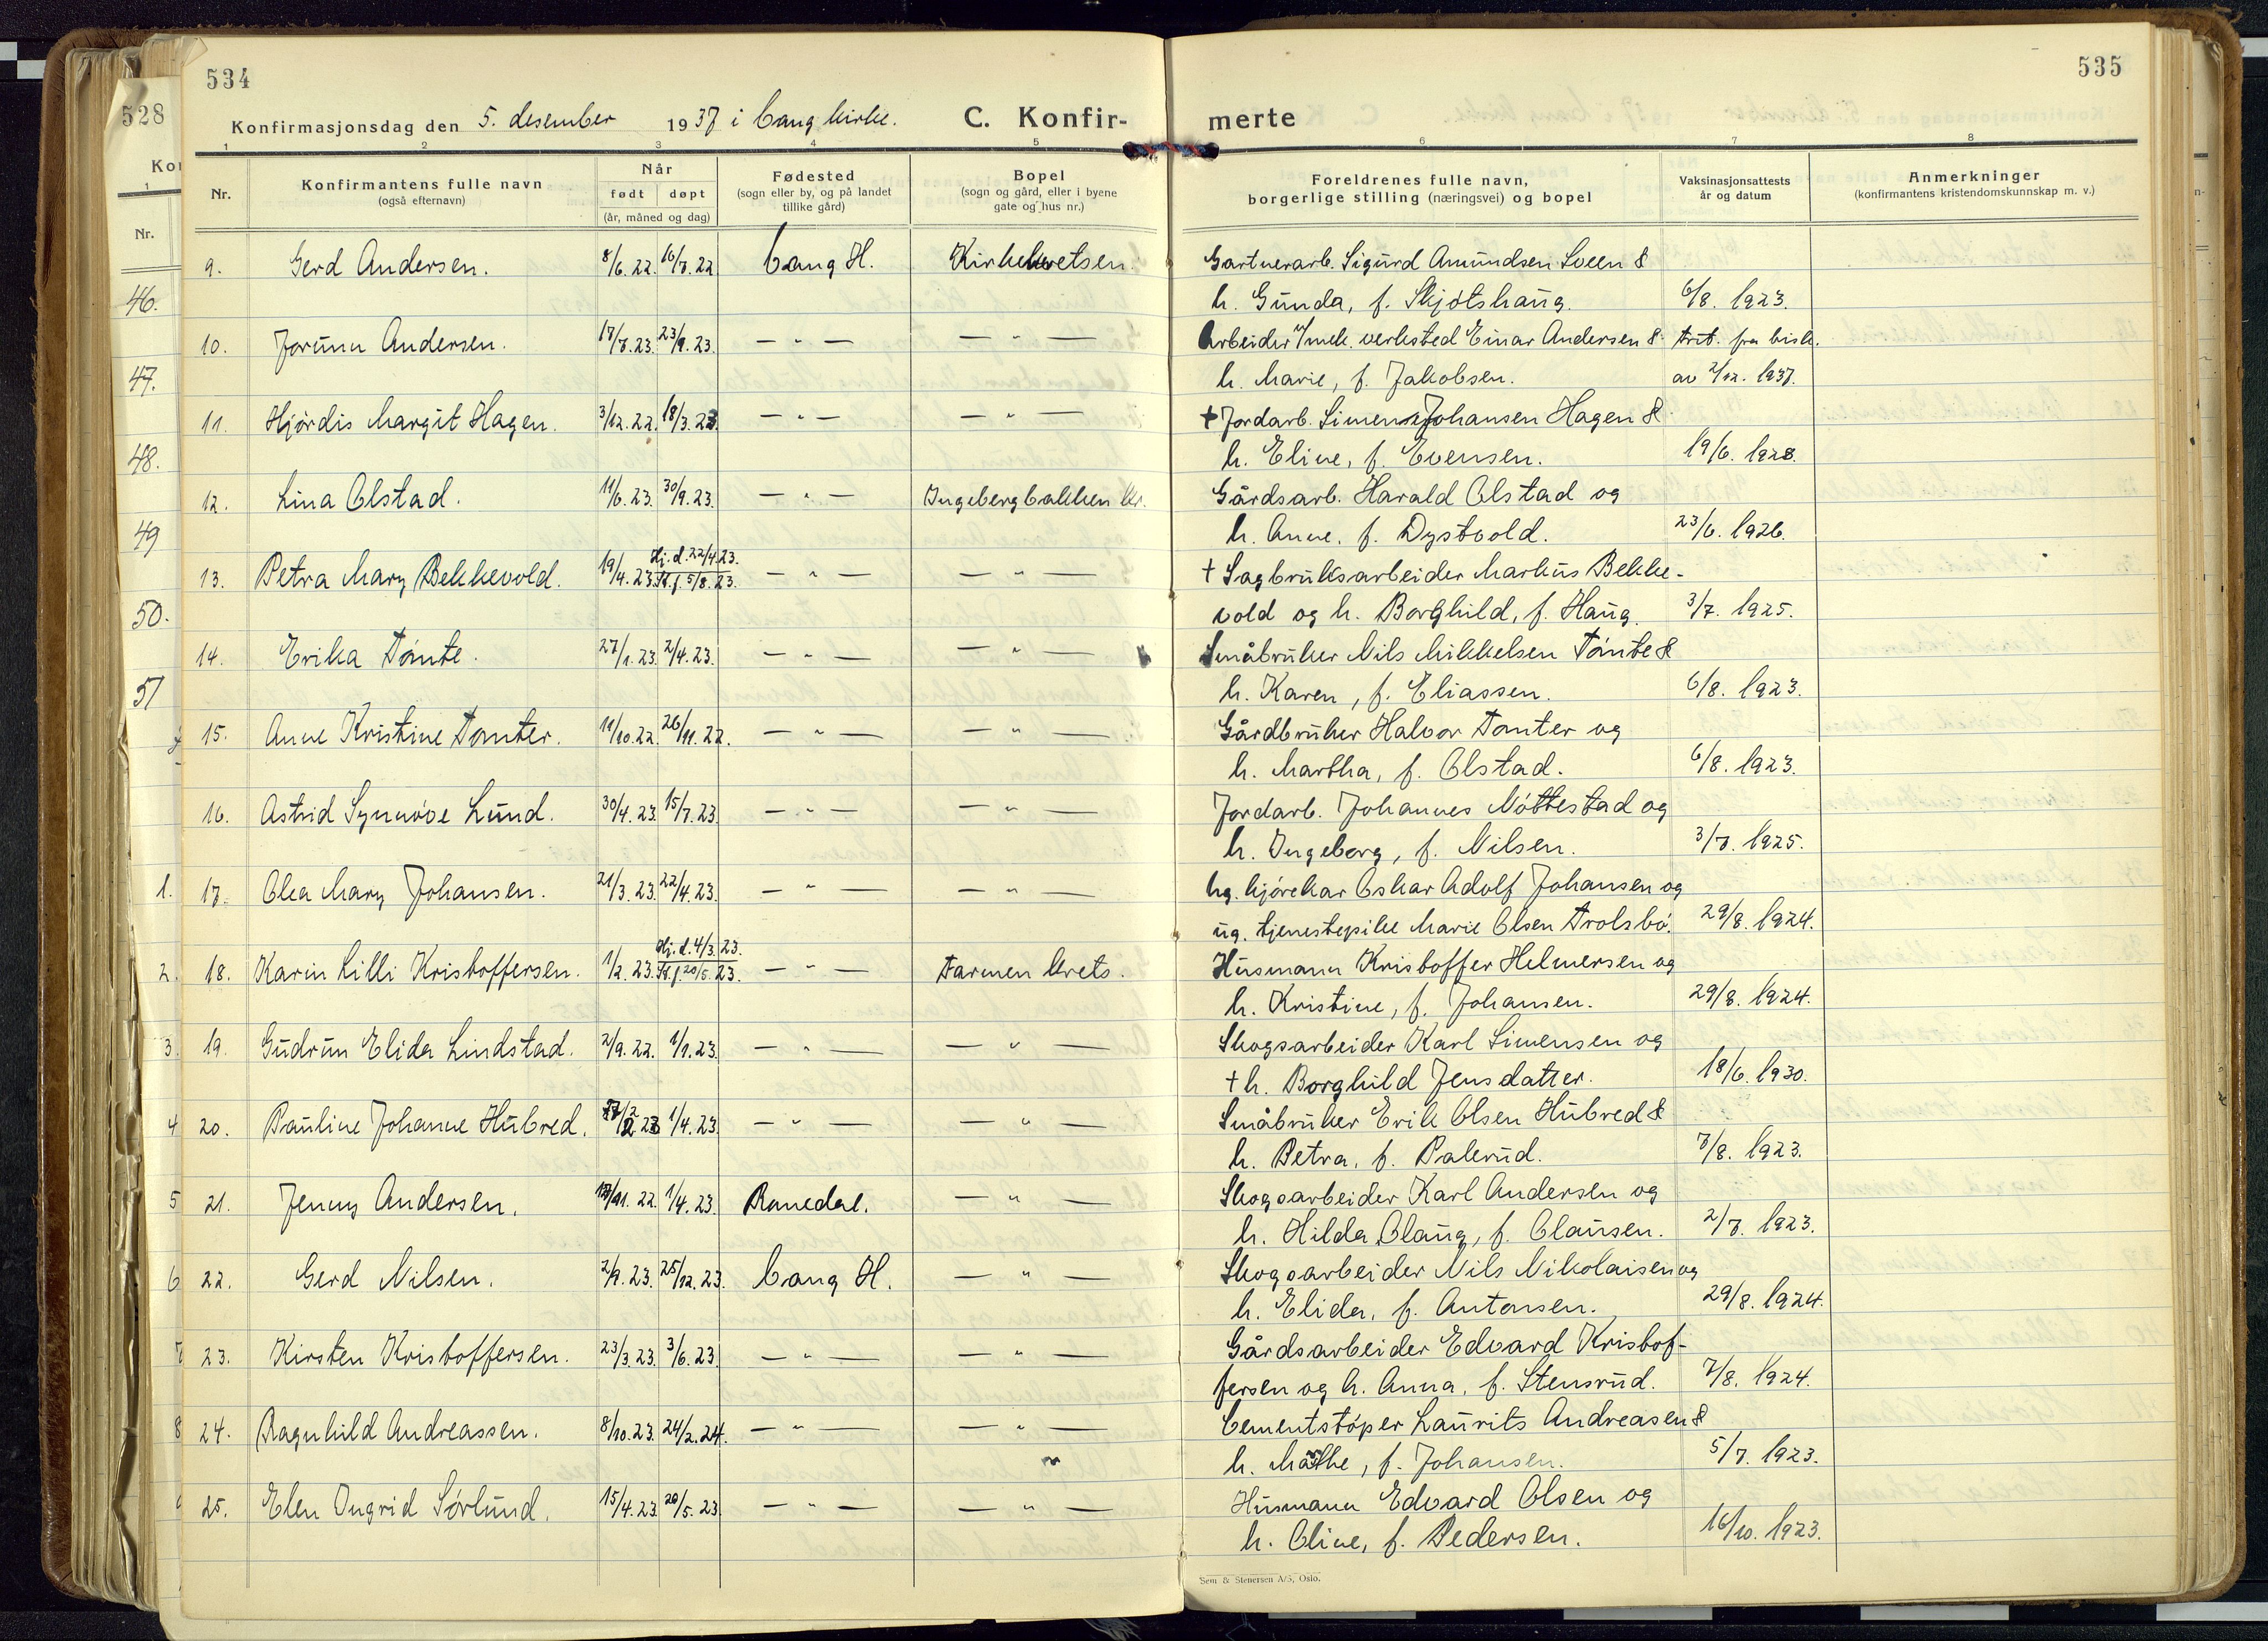 534
535
528
Konfirmasjonsdag den 5. desember 1937 i Vang kirke. C. Konfir-
merte
Kon
1 2 3 4 5 6 7 8
Nr. Konfirmantens fulle navn Når Fødested Bopel
(også efternavn) født døpt (sogn eller by, og på landet (sogn og gård, eller i byene
(år, måned og dag) tillike gård) gate og hus nr.)
Foreldrenes fulle navn, Vaksinasjonsattests Anmerkninger
borgerlige stilling (næringsvei) og bopel år og datum (konfirmantens kristendomskunnskap m. v.)
Nr.
9. Gerd Andersen. 8/6.22. 16/7.22 Vang H. Kirkekretsen. Gartnerarb. Sigurd Amundsen Sveen &
46.
h. Gunda, f. Skjøtshaug. 6/8. 1923.
10. Jorunn Andersen. 17/7.23. 23/9.23. — " — — " — Arbeider v/ mek. verksted Einar Andersen & Frit. fra bisk.
47.
h. Marie, f. Jakobsen. av 2/12. 1937.
11. Hjørdis Margit Hagen. 3/12.22. 18/3.23. — " — — " — † Jordarb. Simen Johansen Hagen &
48.
h. Eline, f. Evensen. 19/6. 1928.
12. Lina Olstad. 11/6.23. 30/9.23. — " — Ingebergbakken kr. Gårdsarb. Harald Olstad og
49
h. Anne, f. Dystvold. 23/6. 1926.
13. Petra Mary Bekkevold. 19/4.23. Hj.d. 22/4.23. St.f. 5/8.23. — " — — " — † Sagbruksarbeider Markus Bekke-
50.
vold og h. Borghild, f. Haug. 3/7. 1925.
14. Erika Tømte. 27/1.23. 2/4.23. — " — — " — Småbruker Nils Mikkelsen Tømte &
51
h. Karen, f. Eliassen. 6/8. 1923.
15. Anne Kristine Tomter. 11/10.22. 26/11.22. — " — — " — Gårdbruker Halvor Tomter og
h. Martha, f. Olstad. 6/8. 1923.
16. Astrid Synnøve Lund. 30/4.23. 15/7.23. — " — — " — Jordarb. Johannes Nøttestad og
h. Ingeborg, f. Nilsen. 3/7. 1925.
1. 17. Olea Mary Johansen. 21/3.23. 22/4.23. — " — — " — Ug. kjørekar Oskar Adolf Johansen og
ug. tjenestepike Marie Olsen Trolsbø. 29/8. 1924.
2. 18. Karin Lilli Kristoffersen. 1/2.23. Hj.d. 4/3.23. St.f. 20/5.23. — " — Farmen krets. Husmann Kristoffer Helmersen og
h. Kristine, f. Johansen. 29/8. 1924.
3. 19. Gudrun Elida Lindstad. 2/9.22. 1/1.23. — " — — " — Skogsarbeider Karl Simensen og
† h. Borghild Jensdatter. 18/6. 1930.
4 20. Pauline Johanne Hubred. 1/4.23. — " — — " — Småbruker Erik Olsen Hubred &
h. Petra, f. Palerud. 7/8. 1923.
5 21. Jenny Andersen. /11.22. 1/4.23. Romedal. — " — Skogsarbeider Karl Andersen og
h. Hilda Olaug, f. Olausen. 2/7. 1923.
6 22. Gerd Nilsen. 2/9.23. 25/12.23. Vang H. — " — Skogsarbeider Nils Nikolaisen og
h. Elida, f. Antonsen. 29/8. 1924.
7 23. Kirsten Kristoffersen. 23/3.23. 3/6.23. — " — — " — Gårdsarbeider Edvard Kristof-
fersen og h. Anna, f. Stensrud. 7/8. 1924.
8 24. Ragnhild Andreassen. 8/10.23. 24/2.24. — " — — " — Cementstøper Laurits Andreasen &
h. Mathe, f. Johansen. 5/7. 1923.
25. Elen Ingrid Sørlund. 15/4.23. 20/5.23. — " — — " — Husmann Edvard Olsen og
h. Oline, f. Pedersen. 16/10. 1923.
Sem & Stenersen A/S, Oslo.